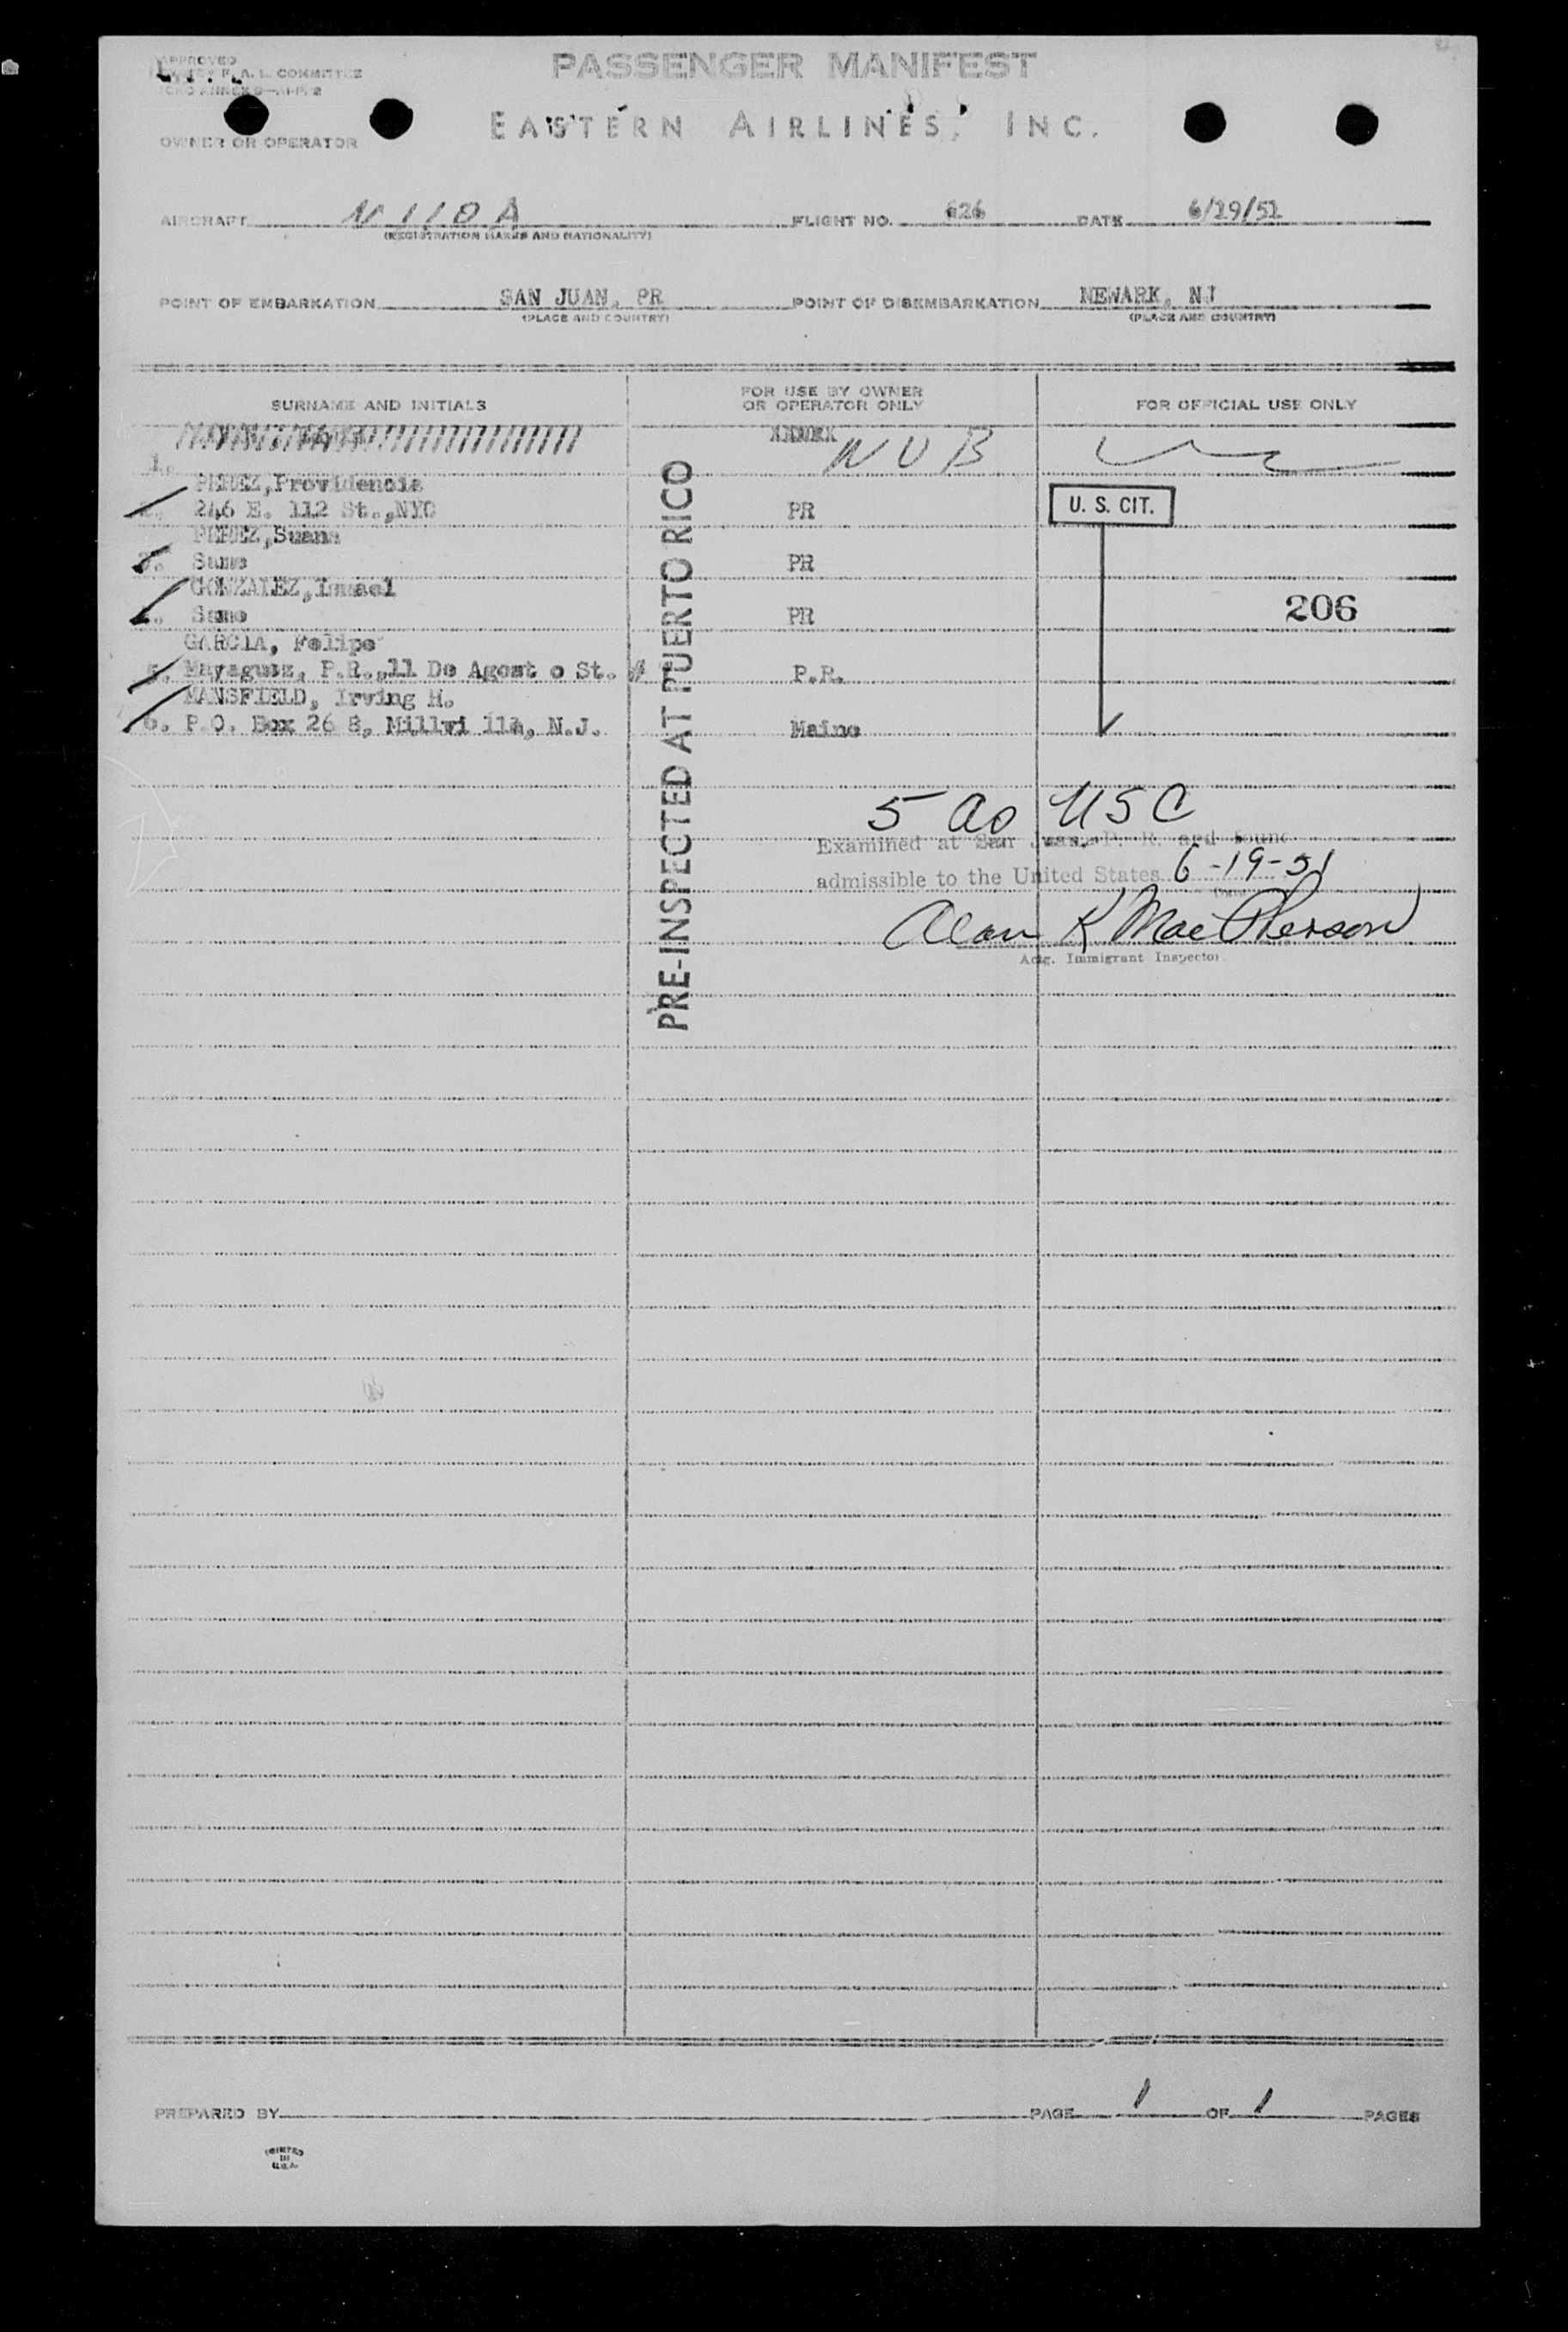 APPROVED
F. A. L. COMMITTEE
PASSENGER MANIFEST
EASTERN AIRLINES, INC.
OWNER OR OPERATOR
AIRCRAFT N110A FLIGHT NO. 626 DATE 6/19/51
(REGISTRATION MARKS AND NATIONALITY)
POINT OF EMBARKATION SAN JUAN, PR POINT OF DISEMBARKATION NEWARK, NJ
(PLACE AND COUNTRY) (PLACE AND COUNTRY)
SURNAME AND INITIALS
FOR USE BY OWNER
OR OPERATOR ONLY
FOR OFFICIAL USE ONLY
1. NUB
PEREZ,Providencia
2. 246 E. 112 St.,NYC PR U. S. CIT.
PEREZ,Suana
3. Same PR
GONZALEZ,Ismael
4. Same PR 206
GARCIA, Felipe
5. Mayaguez, P.R.,11 De Agost o St. # P.R.
MANSFIELD, Irving H.
6. P.O. Box 26 8, Millvi lle, N.J. Maine
PRE-INSPECTED AT PUERTO RICO
5 ao USC
Examined at San Juan, P. R. and found
admissible to the United States 6-19-51
Date
Alan K MacPherson
Actg. Immigrant Inspector
PREPARED BY PAGE 1 OF 1 PAGES
PRINTED
IN
U.S.A.